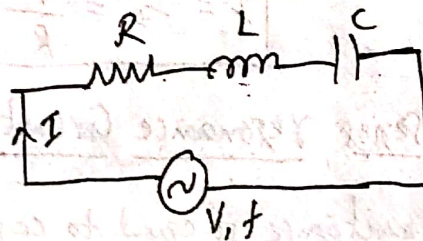 R L C
I
V, f